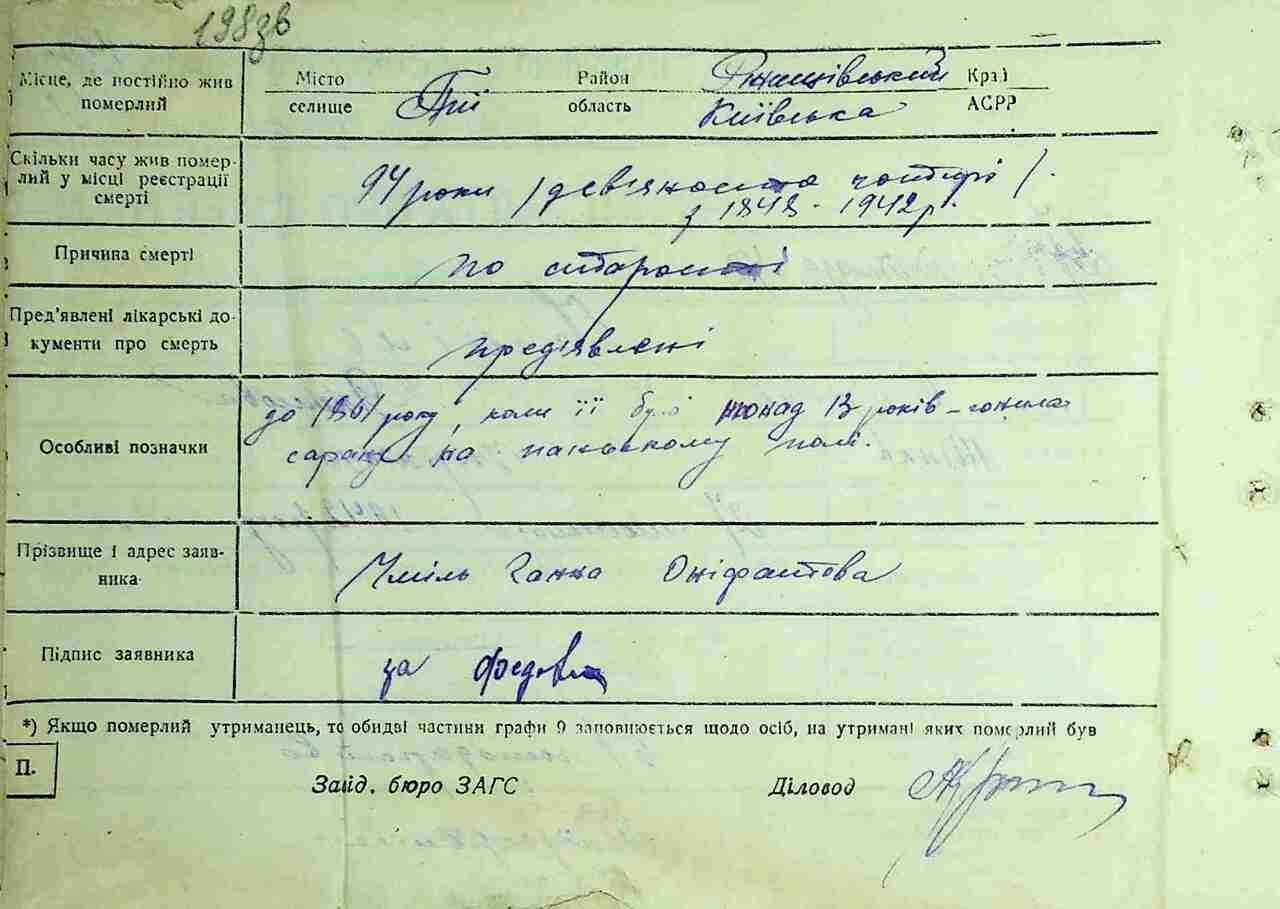 198зв
Місце, де постійно жив померлий
Місто селище
Трії
Район область
Ржищівський
Київська
Краї АСРР
Скільки часу жив померлий у місці реєстрації смерті
94 роки /девяносто чотирі/
з 1848 - 1942 р.
Причина смерті
по старості
Пред'явлені лікарські документи про смерть
предявлені
Особливі позначки
до 1861 року, коли її було понад 13 років - гонила
сарану на панському полі.
Прізвище і адрес заявника
Хміль Ганна Оніфантова
Підпис заявника
за
*) Якщо померлий утриманець, то обидві частини графи 9 заповнюється щодо осіб, на утримані яких померлий був
П.
Зайд. бюро ЗАГС
Діловод